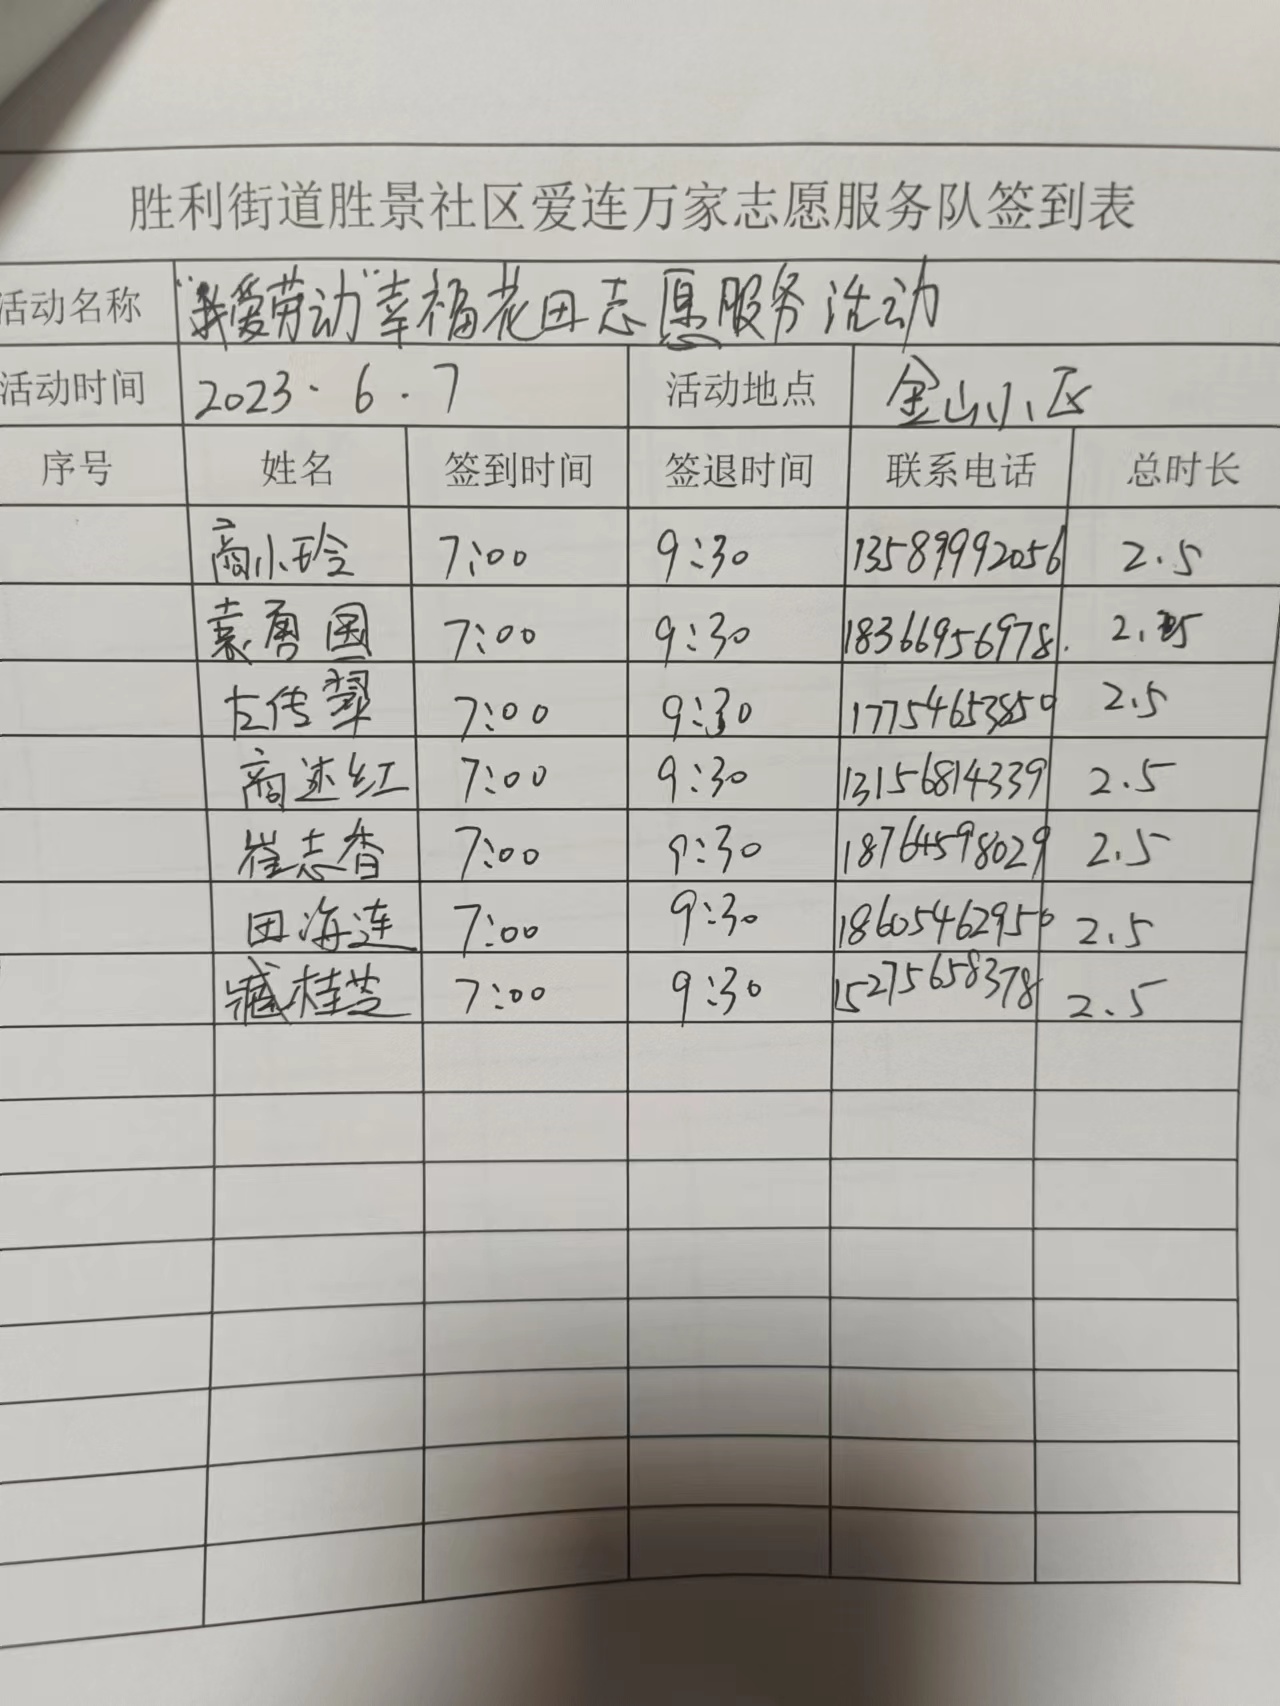 胜利街道胜景社区爱连万家志愿服务队签到表
活动名称 "我爱劳动"幸福花田志愿服务活动
活动时间 2023.6.7 活动地点 金山小区
序号 姓名 签到时间 签退时间 联系电话 总时长
商小玲 7:00 9:30 13589992056 2.5
袁勇国 7:00 9:30 18366956978. 2.5
左传翠 7:00 9:30 17754653850 2.5
商述红 7:00 9:30 13156814339 2.5
崔志香 7:00 9:30 18764598029 2.5
田海连 7:00 9:30 18605462950 2.5
臧桂芝 7:00 9:30 15275658378 2.5